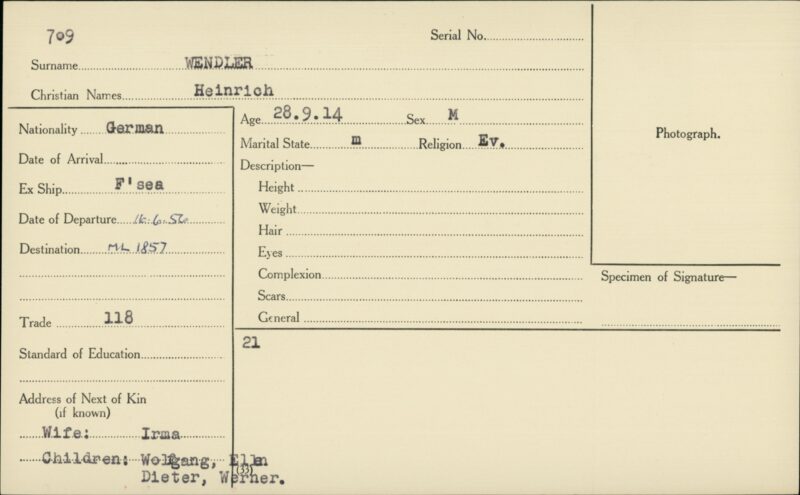 709
Serial No.
Surname WENDLER
Christian Names Heinrich
Nationality German
Date of Arrival
Ex Ship F'sea
Date of Departure 16.6.56
Destination ML 1857
Trade 118
Standard of Education
Address of Next of Kin
(if known)
Wife: Irma
Children: Wolfgang, Ellen
Dieter, Werner.
Age 28.9.14 Sex M
Marital State m Religion Ev.
Description—
Height
Weight
Hair
Eyes
Complexion
Scars
General
21
(33)
Photograph.
Specimen of Signature—